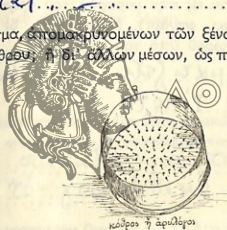 σμα, απομακρυνομένων τῶν ξένω
θρου; ἢ δι' ἄλλων μέσων, ὡς π
ΑΘ
κόθρος ἢ ἀρυλόγος